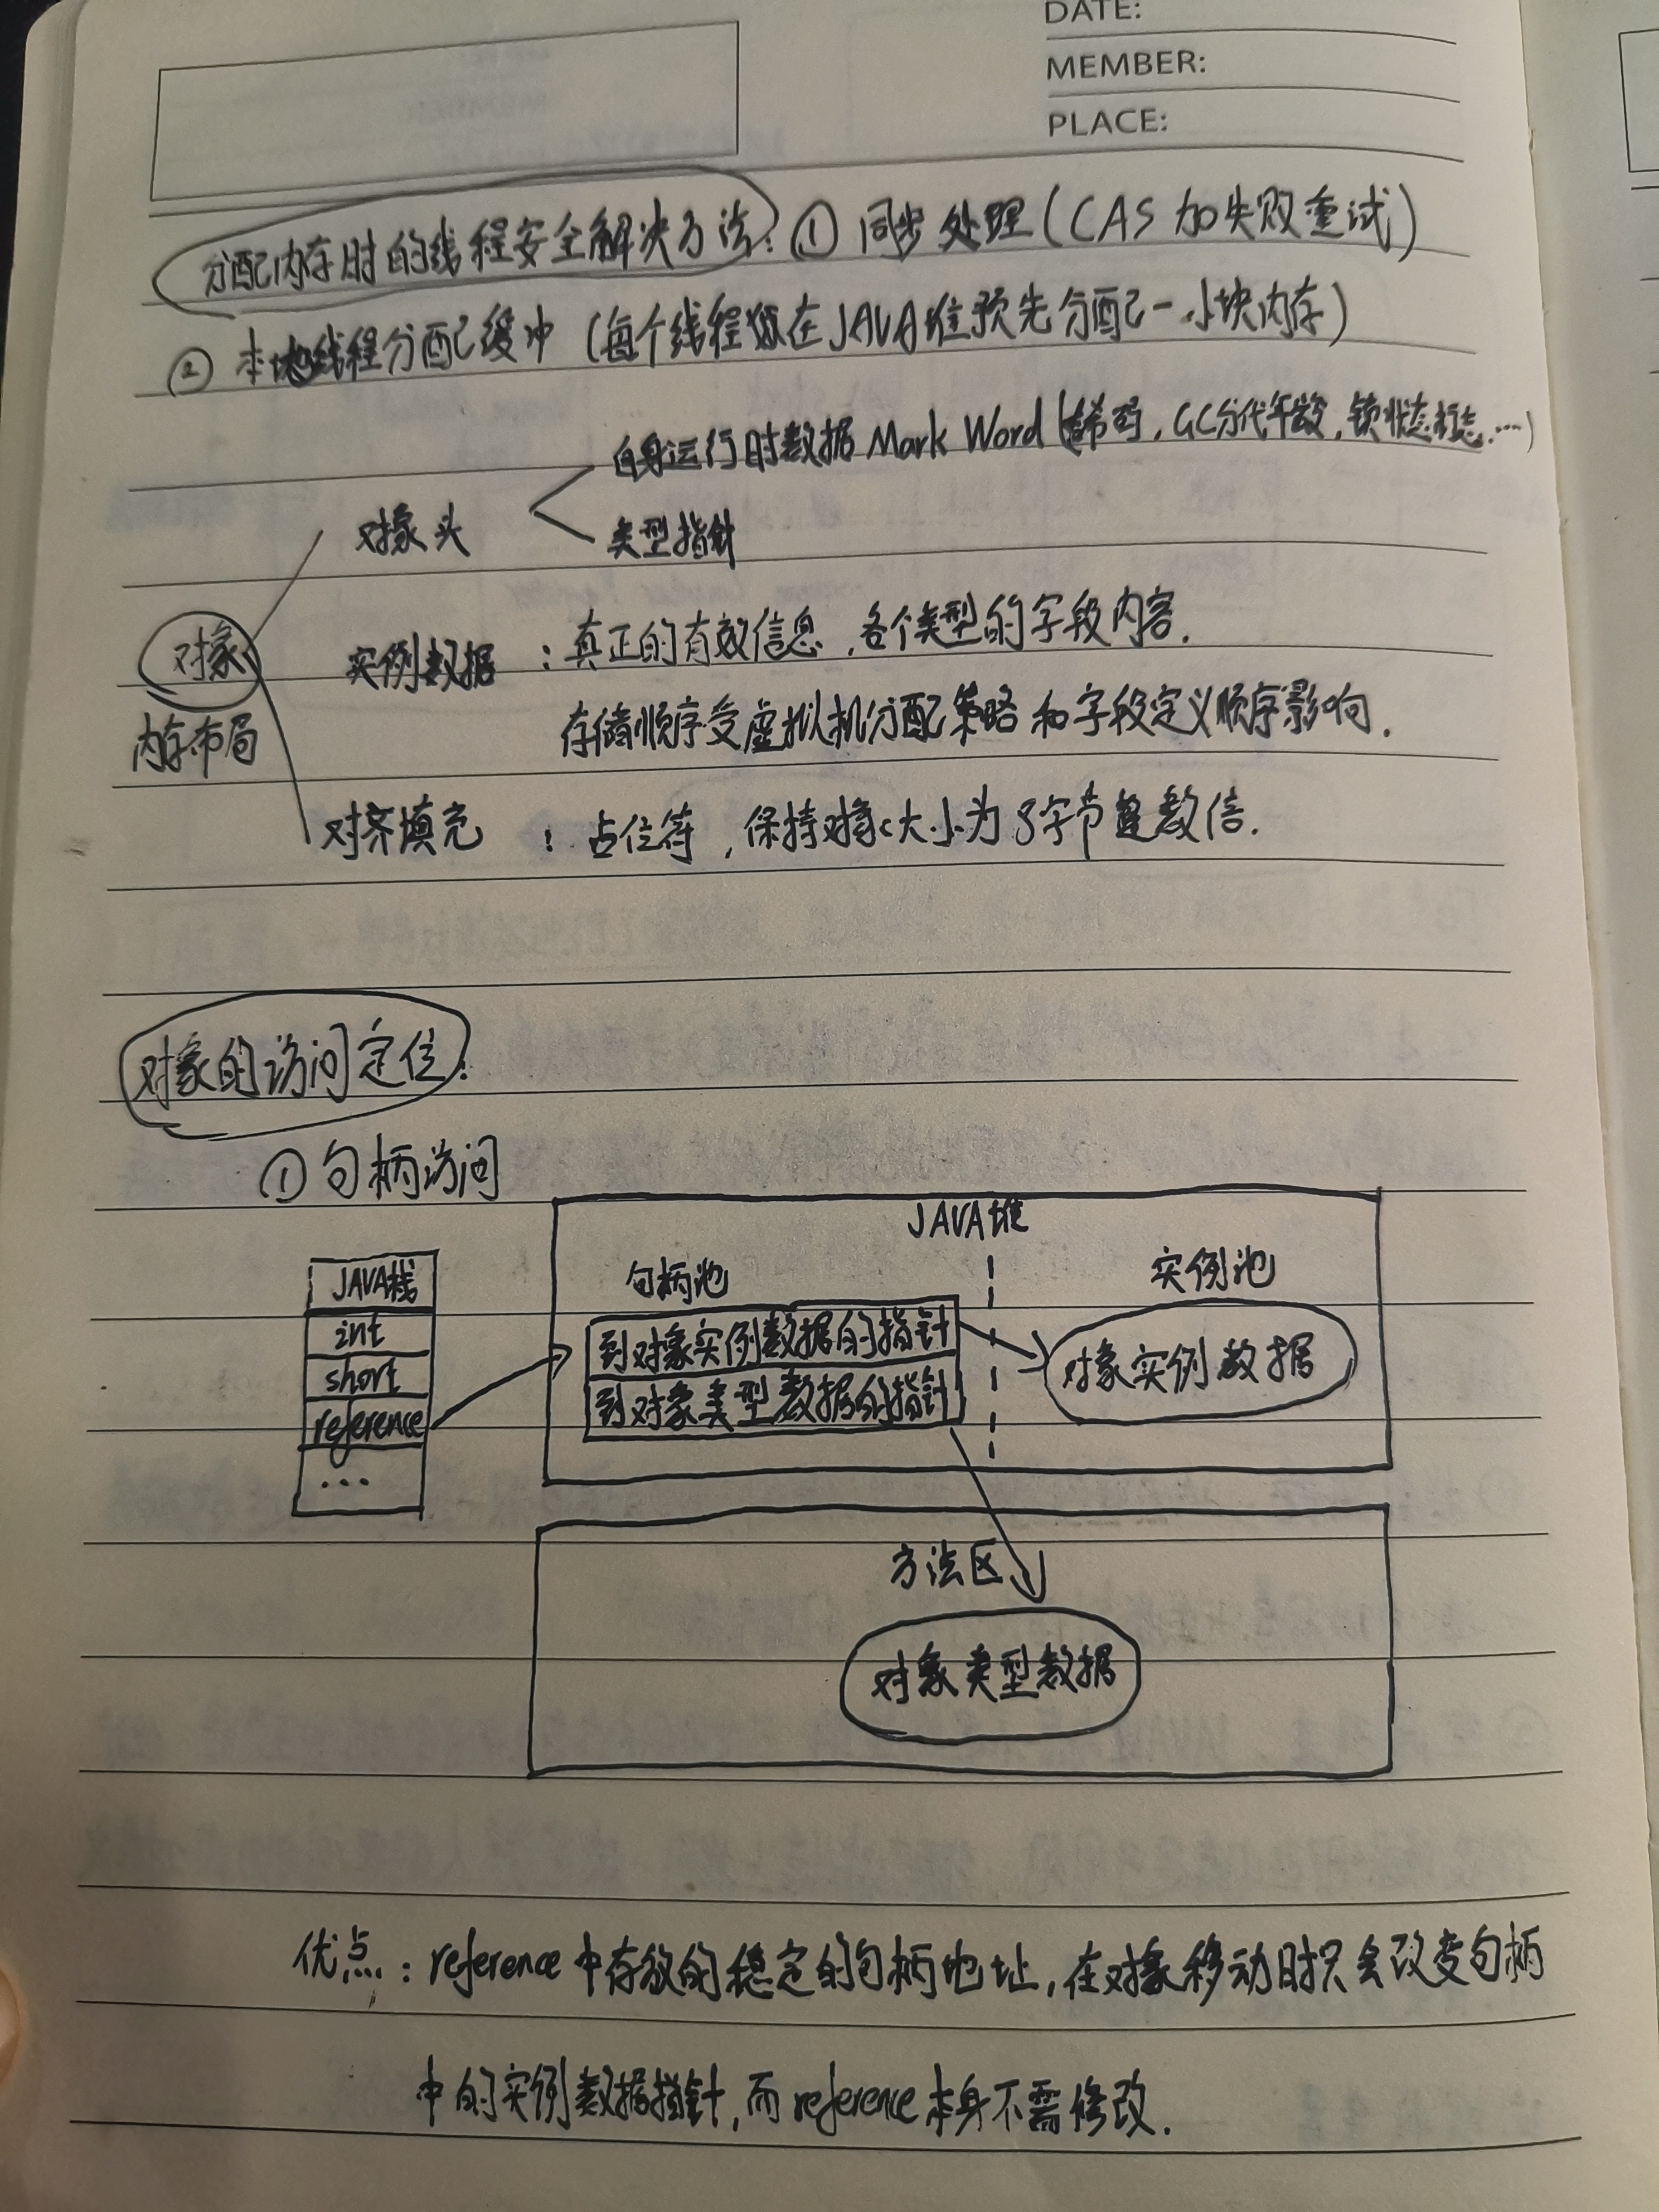 DATE:
MEMBER:
PLACE:
分配内存时的线程安全解决方法:① 同步处理(CAS 加失败重试)
② 本地线程分配缓冲(每个线程在JAVA堆预先分配一小块内存)
自身运行时数据 Mark Word(希码,GC分代年龄,锁状态标志,…)
对象头
类型指针
对象
内存布局
实例数据:真正的有效信息,各个类型的字段内容.
存储顺序受虚拟机分配策略和字段定义顺序影响.
对齐填充:占位符,保持对象大小为8字节整数倍.
对象的访问定位:
① 句柄访问
JAVA堆
JAVA栈
句柄池
实例池
int
到对象实例数据的指针
对象实例数据
short
到对象类型数据的指针
reference
...
方法区
对象类型数据
优点:reference中存放的稳定的句柄地址,在对象移动时只会改变句柄
中的实例数据指针,而reference本身不需修改.